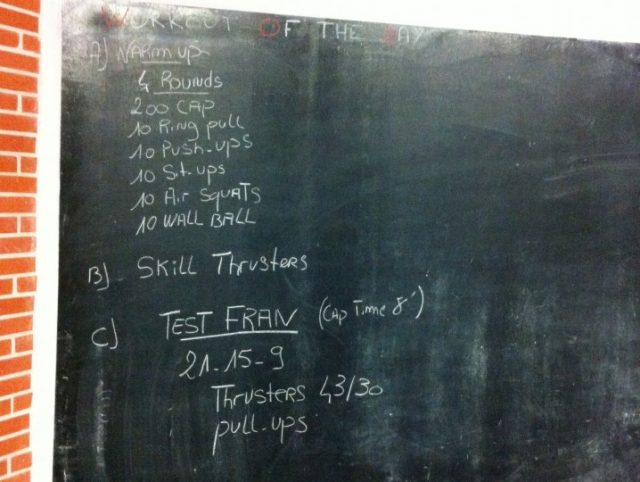 WORKOUT OF THE DAY
A) WARM UP
4 Rounds
200 CAP
10 Ring pull
10 Push-ups
10 Sit-ups
10 Air SquATS
10 WALL BALL
B) Skill Thrusters
C) TEST FRAN (CAP Time 8')
21-15-9
Thrusters 43/30
pull-ups